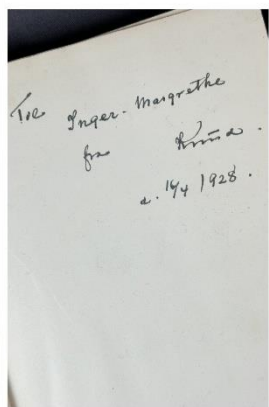 Til Inger-Margrethe
fra Knud.
d. 16/4 1928.